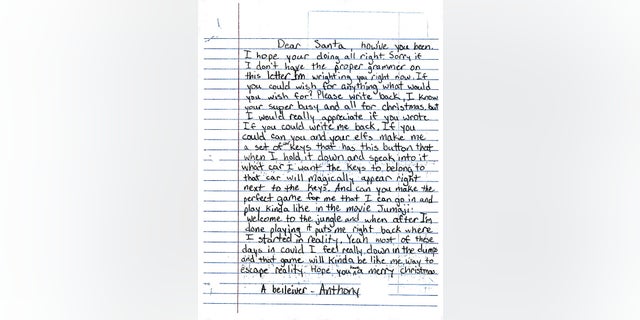 Dear Santa, how've you been.
I hope your doing all right. Sorry if
I don't have the proper grammer on
this letter I'm wrighting you right now. If
you could wish for anything what would
you wish for? Please write back, I know
your super busy and all for christmas, but
I would really appreciate if you wrote
If you could write me back, If you
could can you and your elfs make me
a set of keys that has this button that
when I hold it down and speak into it
what car I want the keys to belong to
that car will magically appear right
next to the keys. And can you make the
perfect game for me that I can go in and
play kinda like in the movie Jumaji:
welcome to the jungle and when after I'm
done playing it puts me right back where
I started in reality. Yeah most of these
days in could I feel really down in the dump
and that game will kinda be like me way to
escape reality. Hope you a merry christmas.
A beileiver - Anthony